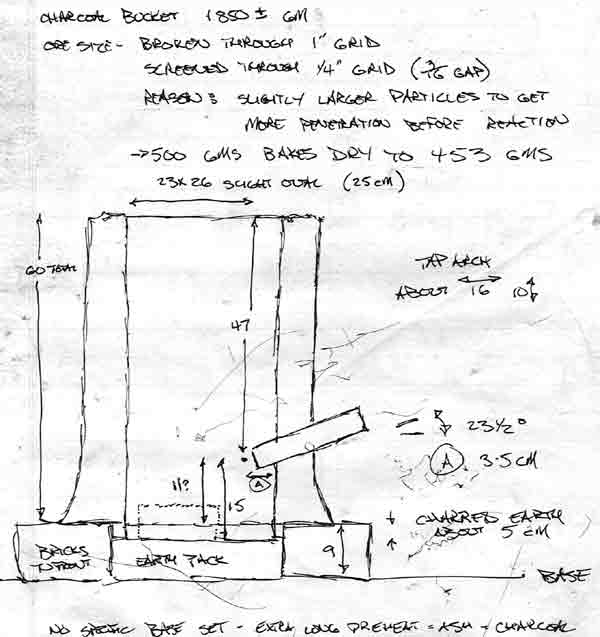 CHARCOAL BUCKET 1850 ± GM
ORE SIZE - BROKEN THROUGH 1" GRID
SCREENED THROUGH 1/4" GRID (3/16 GAP)
REASON: SLIGHTLY LARGER PARTICLES TO GET
MORE PENETRATION BEFORE REACTION
→ 500 GMS BAKES DRY TO 453 GMS
23 x 26 SLIGHT OVAL (25 cm)
60 TOTAL
TAP ARCH
ABOUT 16 10
47
23 1/2°
A 3.5 CM
A
11?
15
CHARRED EARTH
ABOUT 5 CM
BRICKS
TO FRONT
EARTH PACK
9
BASE
NO SPECIFIC BASE SET - EXTRA LONG PREHEAT = ASH - CHARCOAL